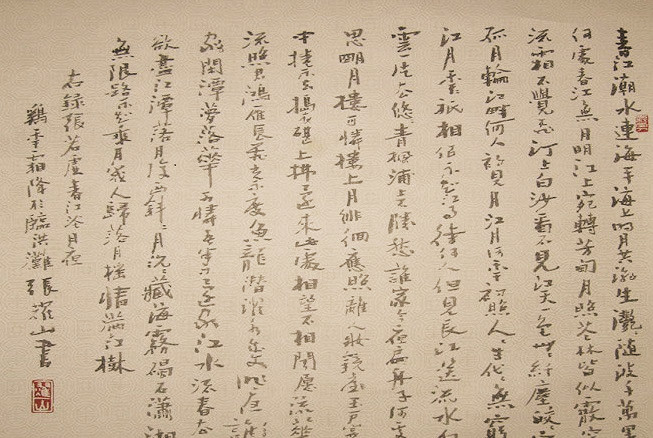 春江潮水連海平海上明月共潮生灩〻隨波千萬里
何處春江無月明江上宛轉芳甸月照花林皆似霰空
流霜不覺飛汀上白沙看不見江天一色無纖塵皎〻
孤月輪江畔何人初見月江月何年初照人人生代〻無窮
江月年〻祇相似不知江月待何人但見長江送流水白
雲一片去悠〻青楓浦上不勝愁誰家今夜扁舟子何處
思明月樓可憐樓上月徘徊應照離人妝鏡臺玉戶簾
中捲不去搗衣砧上拂還來此處相望不相聞願
流照君鴻雁長飛光不度魚龍潛躍水成文昨夜
閑潭夢落花可憐春半不還家江水流春去
欲盡江潭落月復西斜斜月沉〻藏海霧碣石瀟湘
無限路不知乘月幾人歸落月搖情滿江樹
右錄張若虛春江花月夜
鷄年霜降於臨洪灘張耀山書